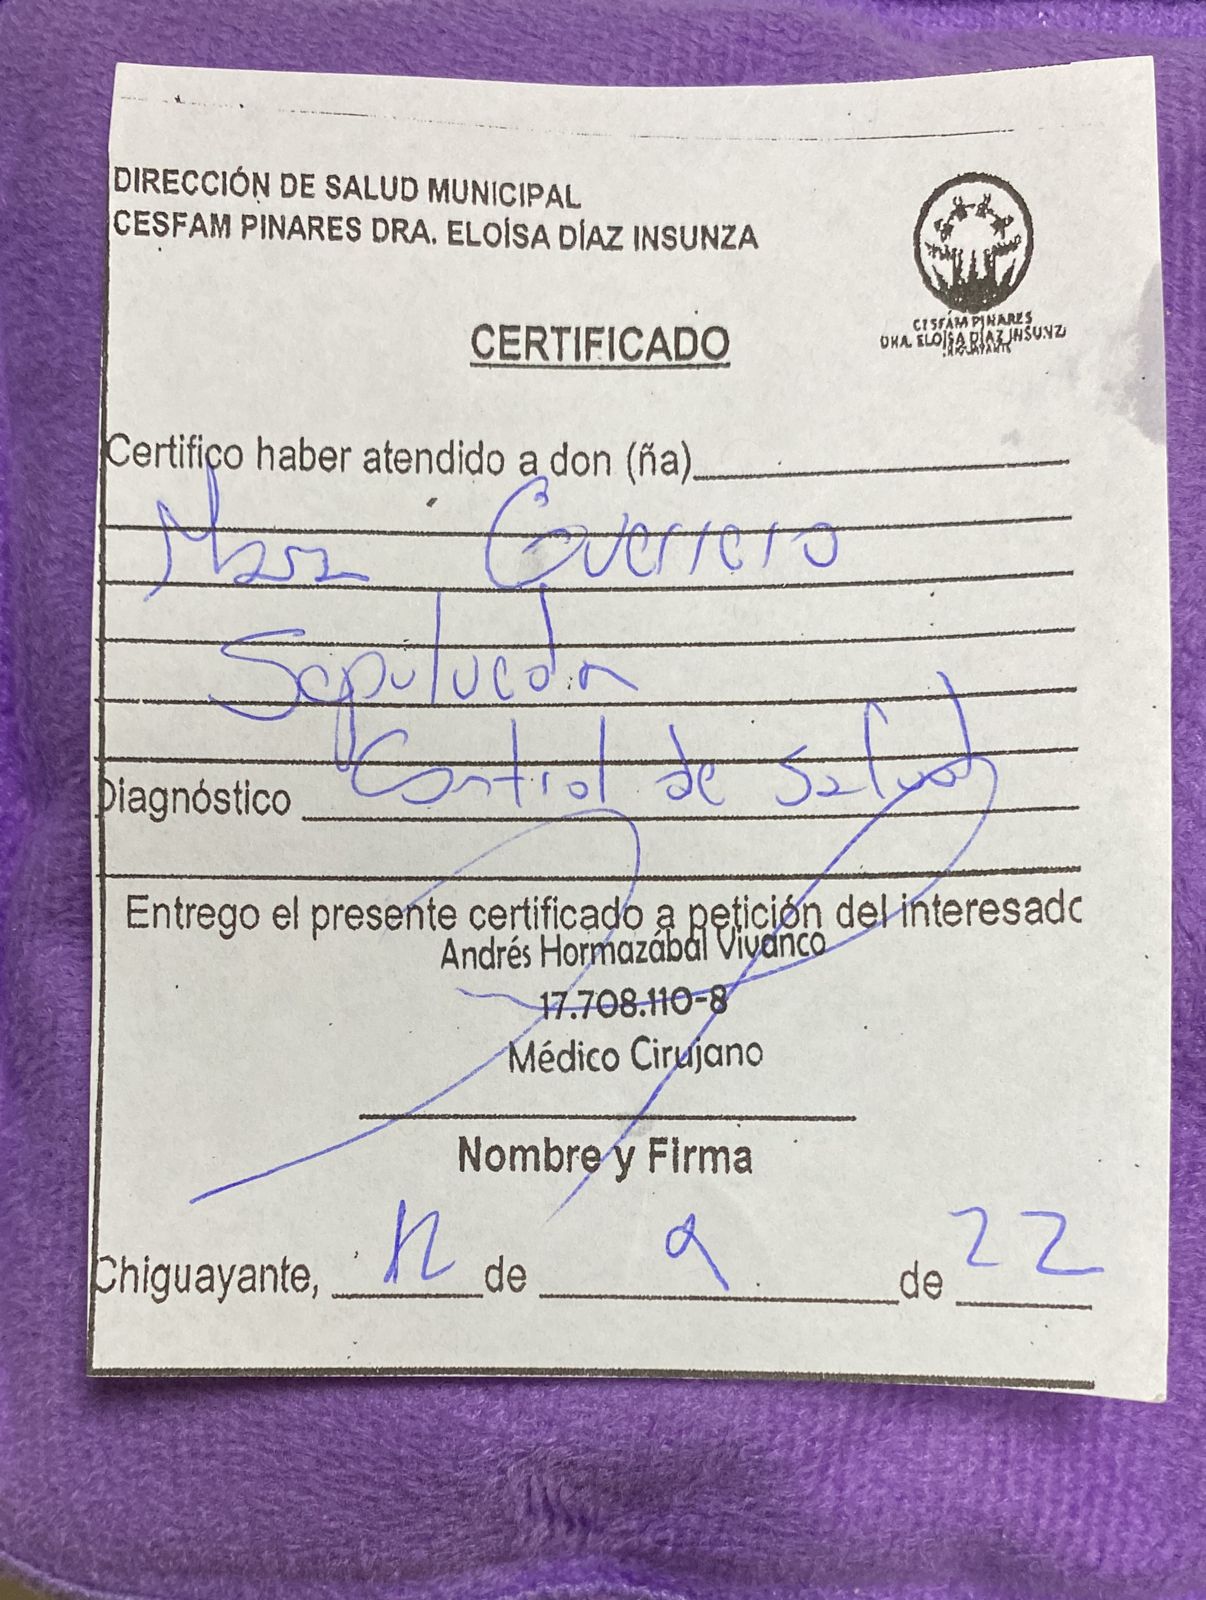 DIRECCIÓN DE SALUD MUNICIPAL
CESFAM PINARES DRA. ELOÍSA DÍAZ INSUNZA
CESFAM PINARES
DRA. ELOÍSA DÍAZ INSUNZ
CERTIFICADO
Certifico haber atendido a don (ña)
Guerrero
Sepulveda
Diagnóstico Control de Salud
Entrego el presente certificado a petición del interesado
Andrés Hormazábal Vivanco
17.708.110-8
Médico Cirujano
Nombre y Firma
Chiguayante, 12 de 9 de 22